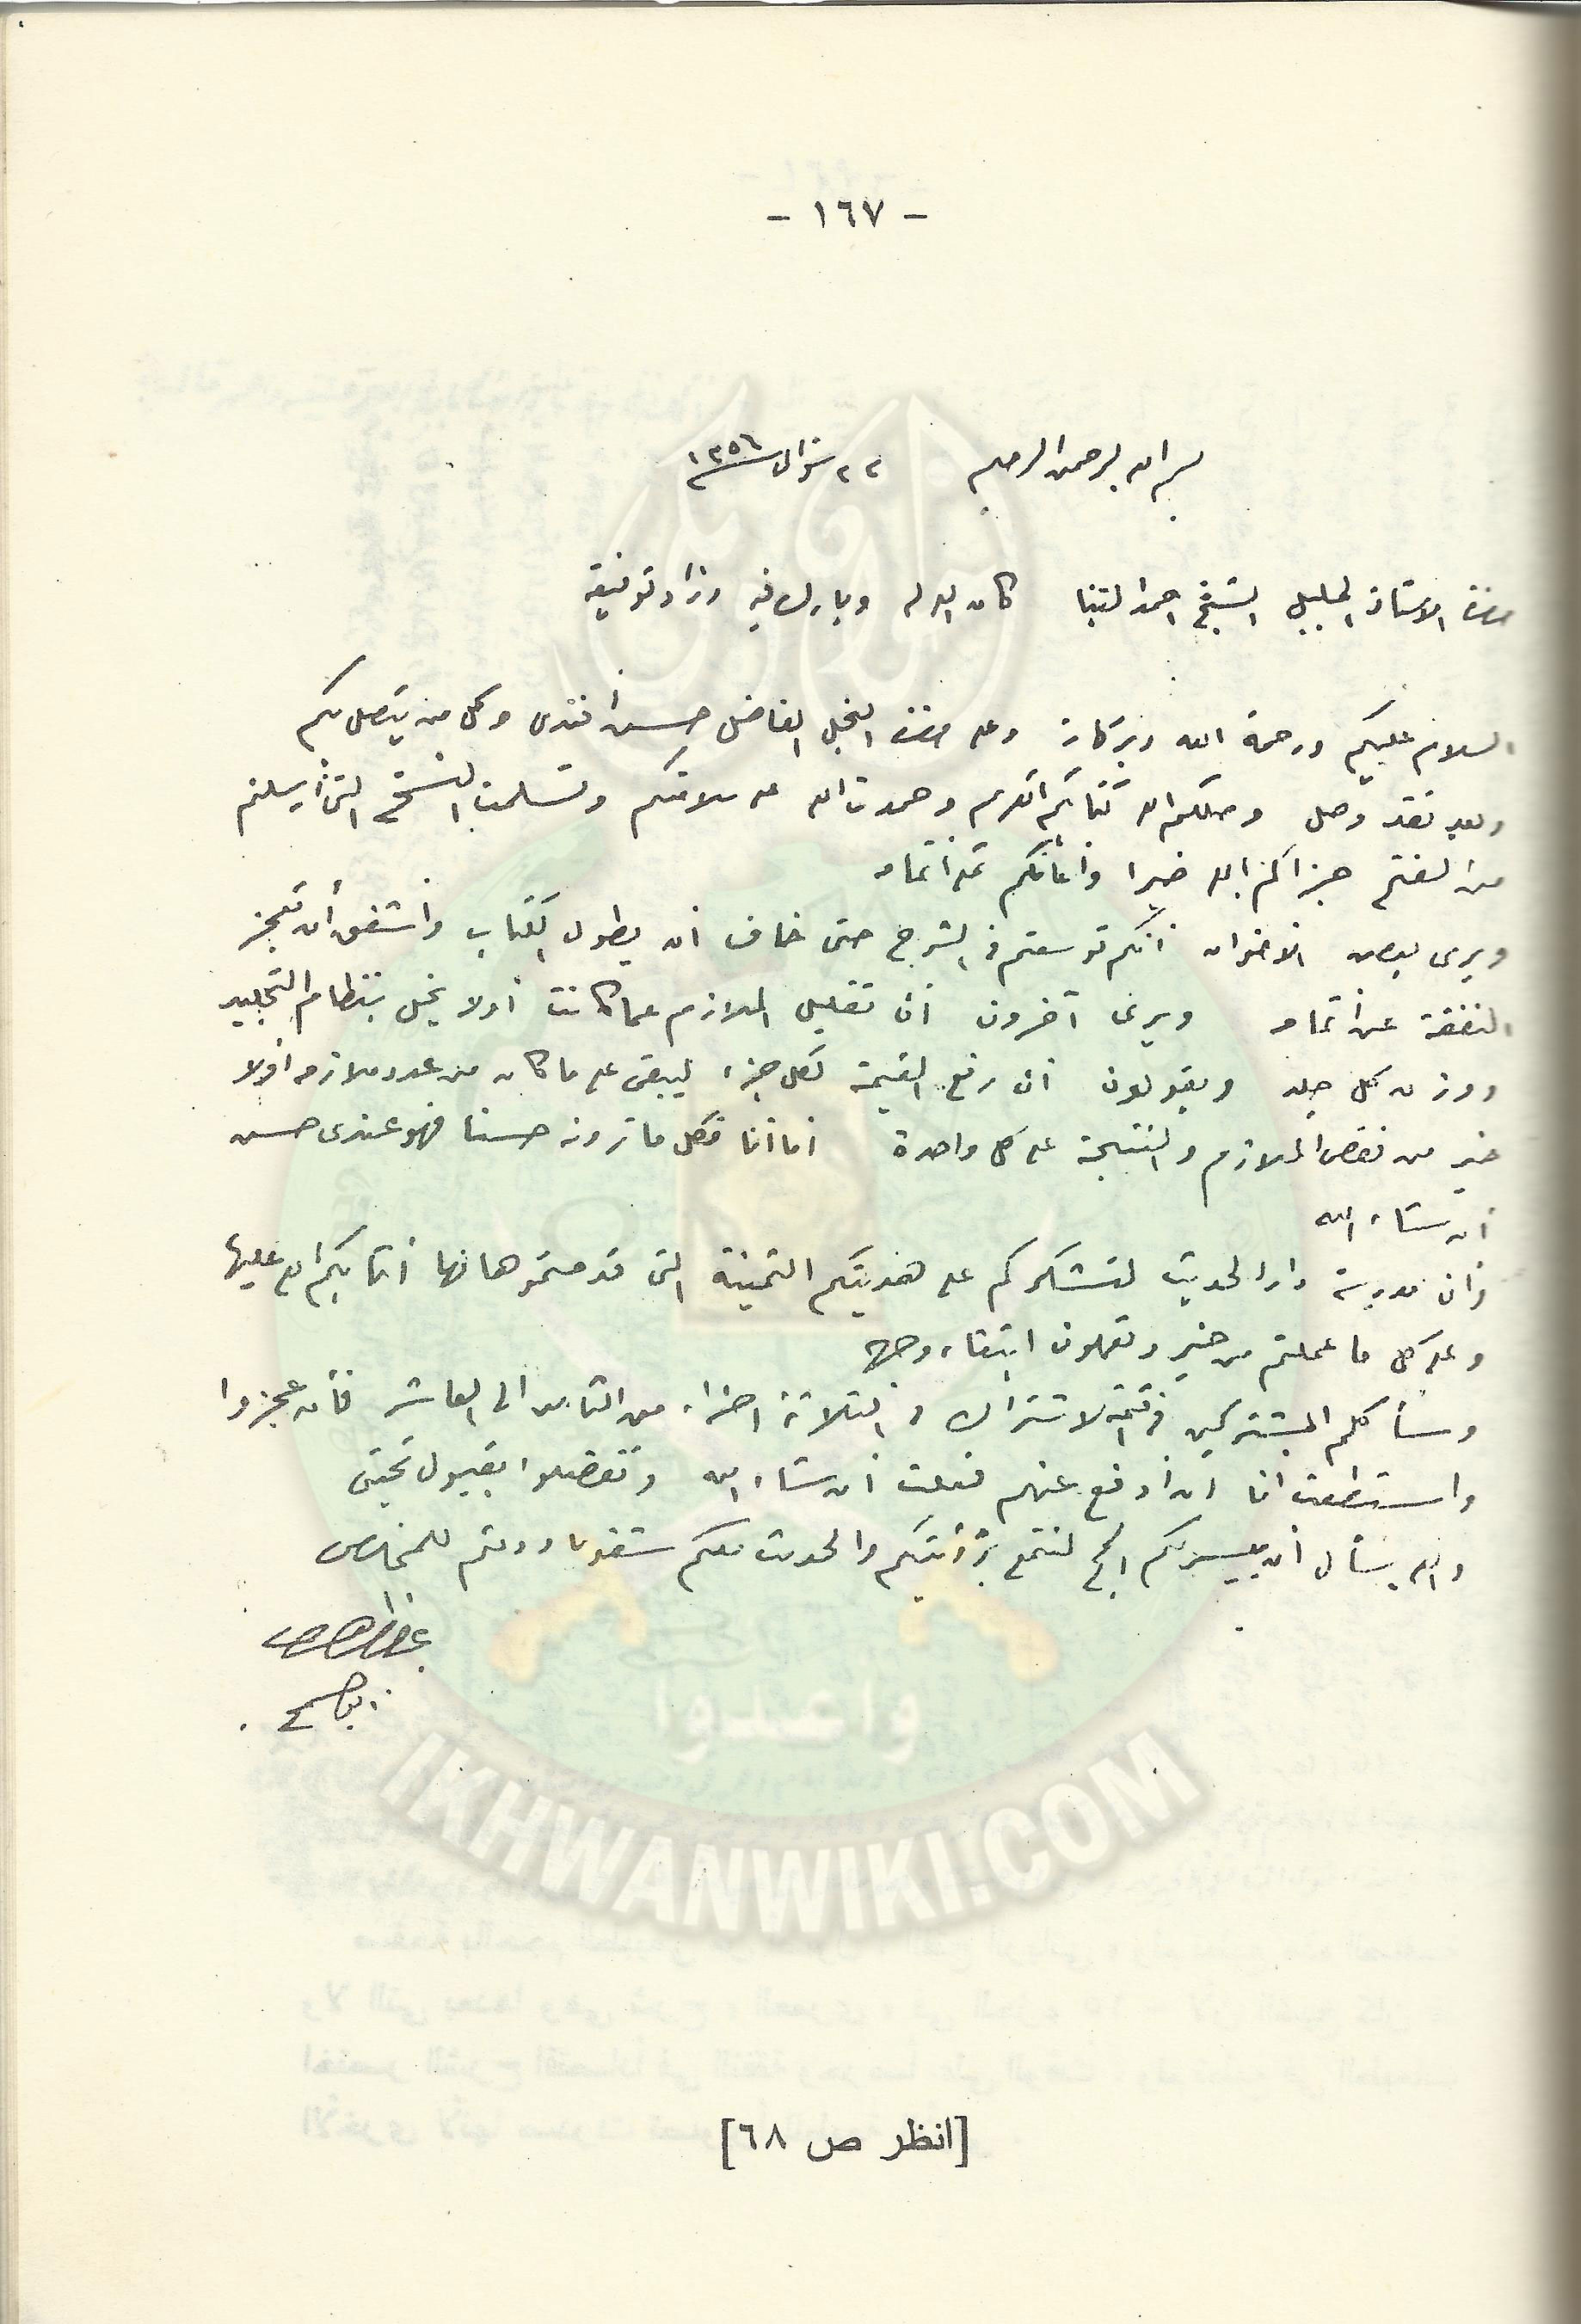 - ١٦٧ -
بسم الله الرحمن الرحيم ٢٢ شوال سنة ١٣٥٦
حضرة الاستاذ الجليل الشيخ احمد البنا كان الله له وبارك فيه وزاد توفيقه
السلام عليكم ورحمة الله وبركاته وعلى حضرة النجل الفاضل حسن افندى وكل من يتصل بكم
وبعد فقد وصل وصلكم الله كتابكم الكريم وحمدت الله على سلامتكم وتسلمت النسخ التى أرسلتم
من الفتح جزاكم الله خيرا وأعانكم على اتمامه
ويرى بعض الاخوان أنكم توسعتم فى الشرح حتى خاف أن يطول الكتاب وأشفق أن تعجز
النفقة عن اتمامه ويرى آخرون أن تقليل الملازم عما كانت أولا يخل بنظام التجليد
ووزن كل جلد ويقولون أن رفع القيمة لكل جزء ليبقى على ما كان من عدد ملازمه أولا
خير من نقص الملازم والنتيجة على كل واحدة أما أنا فكل ما ترونه حسنا فهو عندى حسن
أن شاء الله
وأن مدرسة دار الحديث لتشكركم على هديتكم الثمينة التى قدمتموها لها أثابكم الله عليها
وعلى كل ما عملتم من خير وتعملون ابتغاء وجهه
وسأكلم المشتركين فى قيمة الاشتراك فى الثلاثة اجزاء من الثامن الى العاشر فأن عجزوا
واستطعت انا أن أدفع عنهم فعلت أن شاء الله وتفضلوا بقبول تحيتى
والله يسأل أن ييسر لكم الحج لنتمتع برؤيتكم والحديث معكم شفويا ودمتم للمخلص
ابو السمح
[انظر ص ٦٨]
واعدوا
IKHWANWIKI.COM